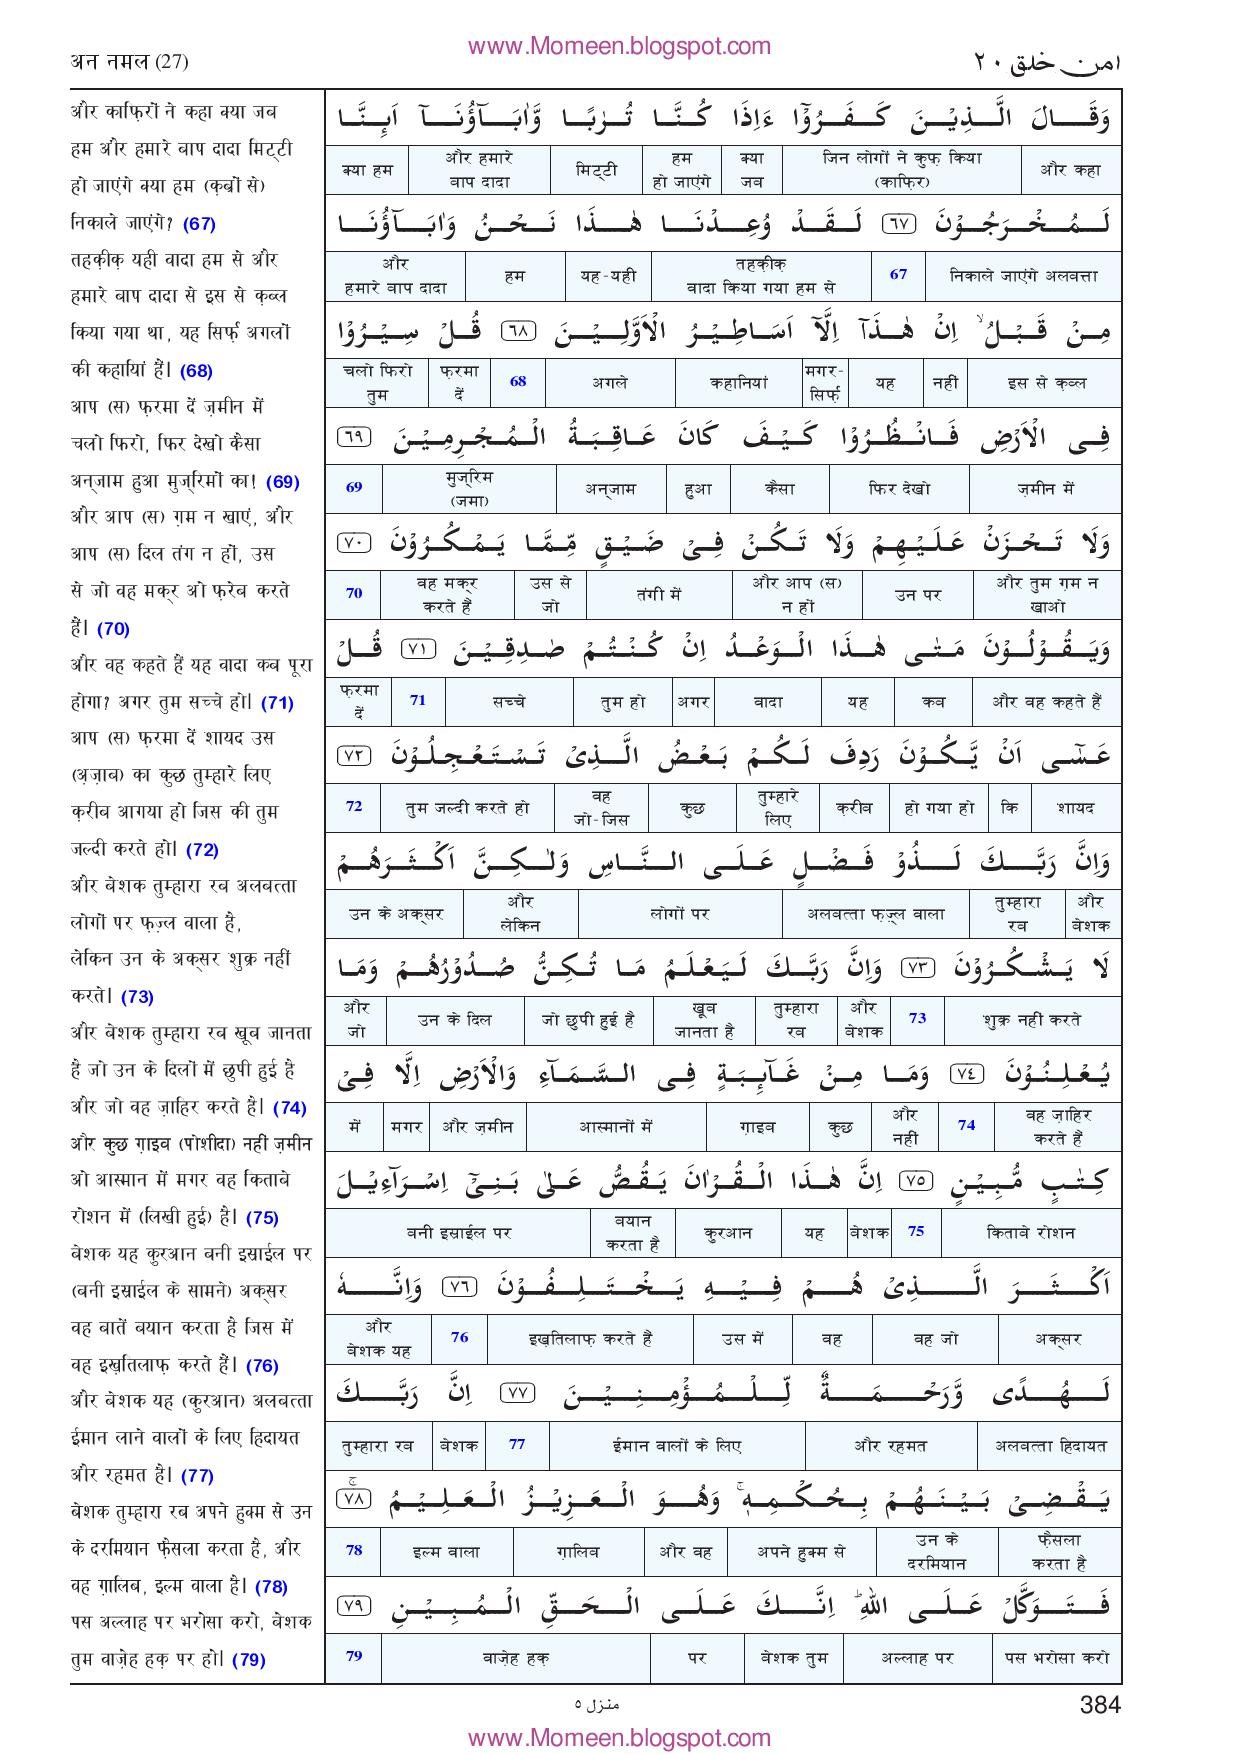 www.Momeen.blogspot.com
अन नमल (27)
امن خلق ٢٠
और काफ़िरों ने कहा क्या जब
हम और हमारे बाप दादा मिट्टी
हो जाएंगे क्या हम (क़ब्रों से)
निकाले जाएंगे? (67)
तहक़ीक़ यही वादा हम से और
हमारे बाप दादा से इस से क़ब्ल
किया गया था, यह सिर्फ़ अगलों
की कहानियां हैं। (68)
आप (स) फ़रमा दें ज़मीन में
चलो फिरो, फिर देखो कैसा
अन्जाम हुआ मुज्रिमों का! (69)
और आप (स) ग़म न खाएं, और
आप (स) दिल तंग न हों, उस
से जो वह मक्र ओ फ़रेब करते
हैं। (70)
और वह कहते हैं यह वादा कब पूरा
होगा? अगर तुम सच्चे हो। (71)
आप (स) फ़रमा दें शायद उस
(अ़ज़ाब) का कुछ तुम्हारे लिए
क़रीब आगया हो जिस की तुम
जल्दी करते हो। (72)
और बेशक तुम्हारा रब अलबत्ता
लोगों पर फ़ज़्ल वाला है,
लेकिन उन के अक्सर शुक्र नहीं
करते। (73)
और बेशक तुम्हारा रब खूब जानता
है जो उन के दिलों में छुपी हुई है
और जो वह ज़ाहिर करते हैं। (74)
और कुछ ग़ाइब (पोशीदा) नहीं ज़मीन
ओ आस्मान में मगर वह किताबे
रोशन में (लिखी हुई) है। (75)
बेशक यह कुरआन बनी इस्राईल पर
(बनी इस्राईल के सामने) अक्सर
वह बातें बयान करता है जिस में
वह इख़्तिलाफ़ करते हैं। (76)
और बेशक यह (कुरआन) अलबत्ता
ईमान लाने वालों के लिए हिदायत
और रहमत है। (77)
बेशक तुम्हारा रब अपने हुक्म से उन
के दरमियान फ़ैसला करता है, और
वह ग़ालिब, इल्म वाला है। (78)
पस अल्लाह पर भरोसा करो, बेशक
तुम वाज़ेह हक़ पर हो। (79)
وَقَالَ الَّذِيْنَ كَفَرُوْۤا ءَاِذَا كُنَّا تُرٰبًا وَّاٰبَآؤُنَاۤ اَئِنَّا
और कहा जिन लोगों ने कुफ़ किया (काफ़िर) क्या जब हम हो जाएंगे मिट्टी और हमारे बाप दादा क्या हम
لَمُخْرَجُوْنَ ٦٧ لَقَدْ وُعِدْنَا هٰذَا نَحْنُ وَاٰبَآؤُنَا
निकाले जाएंगे अलबत्ता 67 तहक़ीक़ वादा किया गया हम से यह-यही हम और हमारे बाप दादा
مِنْ قَبْلُ ۙ اِنْ هٰذَاۤ اِلَّاۤ اَسَاطِيْرُ الْاَوَّلِيْنَ ٦٨ قُلْ سِيْرُوْا
इस से क़ब्ल नहीं यह मगर-सिर्फ़ कहानियां अगले 68 फ़रमा दें चलो फिरो तुम
فِى الْاَرْضِ فَانْظُرُوْا كَيْفَ كَانَ عَاقِبَةُ الْمُجْرِمِيْنَ ٦٩
ज़मीन में फिर देखो कैसा हुआ अन्जाम मुज्रिम (जमा) 69
وَلَا تَحْزَنْ عَلَيْهِمْ وَلَا تَكُنْ فِىْ ضَيْقٍ مِّمَّا يَمْكُرُوْنَ ٧٠
और तुम ग़म न खाओ उन पर और आप (स) न हों तंगी में उस से जो वह मक्र करते हैं 70
وَيَقُوْلُوْنَ مَتٰى هٰذَا الْوَعْدُ اِنْ كُنْتُمْ صٰدِقِيْنَ ٧١ قُلْ
और वह कहते हैं कब यह वादा अगर तुम हो सच्चे 71 फ़रमा दें
عَسٰۤى اَنْ يَّكُوْنَ رَدِفَ لَكُمْ بَعْضُ الَّذِىْ تَسْتَعْجِلُوْنَ ٧٢
शायद कि हो गया हो क़रीब तुम्हारे लिए कुछ वह जो-जिस तुम जल्दी करते हो 72
وَاِنَّ رَبَّكَ لَذُوْ فَضْلٍ عَلَى النَّاسِ وَلٰكِنَّ اَكْثَرَهُمْ
और बेशक तुम्हारा रब अलबत्ता फ़ज़्ल वाला लोगों पर और लेकिन उन के अक्सर
لَا يَشْكُرُوْنَ ٧٣ وَاِنَّ رَبَّكَ لَيَعْلَمُ مَا تُكِنُّ صُدُوْرُهُمْ وَمَا
शुक्र नहीं करते 73 और बेशक तुम्हारा रब खूब जानता है जो छुपी हुई है उन के दिल और जो
يُعْلِنُوْنَ ٧٤ وَمَا مِنْ غَآئِبَةٍ فِى السَّمَآءِ وَالْاَرْضِ اِلَّا فِىْ
वह ज़ाहिर करते हैं 74 और नहीं कुछ ग़ाइब आस्मानों में और ज़मीन मगर में
كِتٰبٍ مُّبِيْنٍ ٧٥ اِنَّ هٰذَا الْقُرْاٰنَ يَقُصُّ عَلٰى بَنِىْۤ اِسْرَآءِيْلَ
किताबे रोशन 75 बेशक यह कुरआन बयान करता है बनी इस्राईल पर
اَكْثَرَ الَّذِىْ هُمْ فِيْهِ يَخْتَلِفُوْنَ ٧٦ وَاِنَّهٗ
अक्सर वह जो वह उस में इख़्तिलाफ़ करते हैं 76 और बेशक यह
لَهُدًى وَّرَحْمَةٌ لِّلْمُؤْمِنِيْنَ ٧٧ اِنَّ رَبَّكَ
अलबत्ता हिदायत और रहमत ईमान वालों के लिए 77 बेशक तुम्हारा रब
يَقْضِىْ بَيْنَهُمْ بِحُكْمِهٖ ۚ وَهُوَ الْعَزِيْزُ الْعَلِيْمُ ٧٨ ۚ
फ़ैसला करता है उन के दरमियान अपने हुक्म से और वह ग़ालिब इल्म वाला 78
فَتَوَكَّلْ عَلَى اللّٰهِ ؕ اِنَّكَ عَلَى الْحَقِّ الْمُبِيْنِ ٧٩
पस भरोसा करो अल्लाह पर बेशक तुम पर वाज़ेह हक़ 79
منزل ٥
384
www.Momeen.blogspot.com